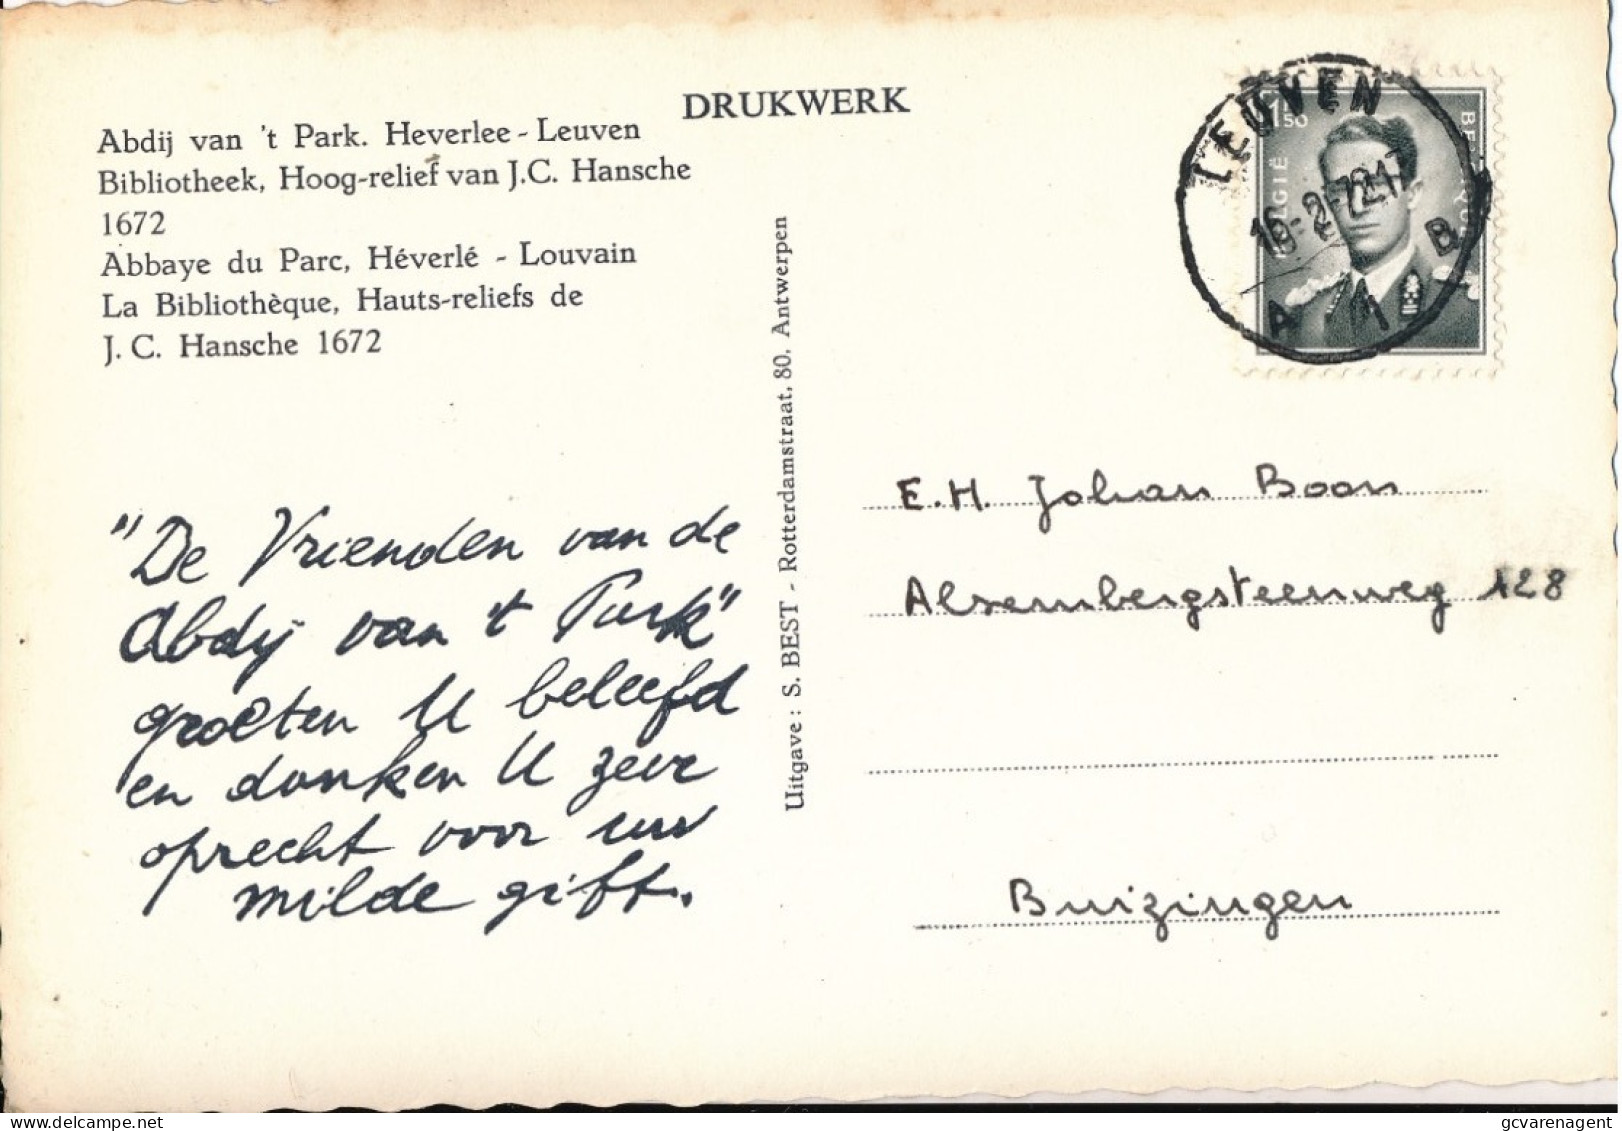 DRUKWERK
Abdij van 't Park. Heverlee - Leuven
Bibliotheek, Hoog-relief van J.C. Hansche
1672
Abbaye du Parc, Héverlé - Louvain
La Bibliothèque, Hauts-reliefs de
J. C. Hansche 1672
"De Vrienden van de
Abdij van 't Park"
groeten U beleefd
en danken U zeer
oprecht voor uw
milde gift.
Uitgave : S. BEST - Rotterdamstraat, 80, Antwerpen
LEUVEN
16-2-72 17
A 1 B
1,50
BELGIË
BELGIQUE
E.H. Johan Boon
Alsembergsteenweg 128
Buizingen
© gcvarenagent